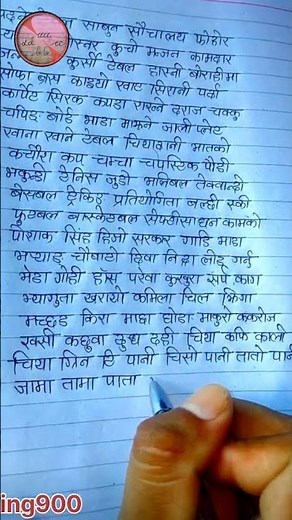 साबुन सौचालय फोहोर
कुचो मन्जन कामदार
कुर्सी टेबल हास्नी बोराहीमा
सोफा ब्रस काइयो खाट सिरानी पर्दा
कार्पेट सिरक कपडा राख्ने दराज चक्कु
चपिङ बोर्ड भाडा माझ्ने जाली प्लेट
खाना खाने टेबल चियादानी भातको
कचौरा कप चम्चा चपस्टिक पौडी
भकुन्डो टेनिस जुडो भलिबल तेक्वान्दो
बेसबल ट्रेकिङ प्रतियोगिता बल्छी स्की
फुटबल बास्केटबल सेफ्टीसाधन कामको
पोशाक सिंह हिजो सरकार गाडि भाडा
भर्‍याङ चौबाटो दिशा निद्रा लौरु गर्नु
भेडा गोही हाँस परेवा कुखुरा सर्प काग
भ्यागुता खरायो कमिला चिल झिंगा
मच्छड किरा माछा घोडा माकुरो ककरोज
रक्सी कछुवा दुध दही चिया कफि कालो
चिया ग्रिन टि पानी चिसो पानी तातो पानी
जामा तामा पाता
ing900